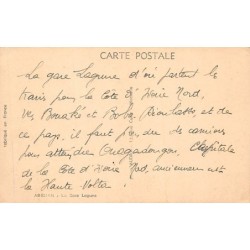 CARTE POSTALE
La gare Lagune d'où partent les
trains pour la Côte d'Ivoire Nord,
vers Bouaké et Bobo Dioulasso, et de
ce pays, il faut des camions
pour atteindre Ouagadougou, Chef-lieu
de la Côte d'Ivoire Nord, anciennement
la Haute Volta.
Gare Lagune